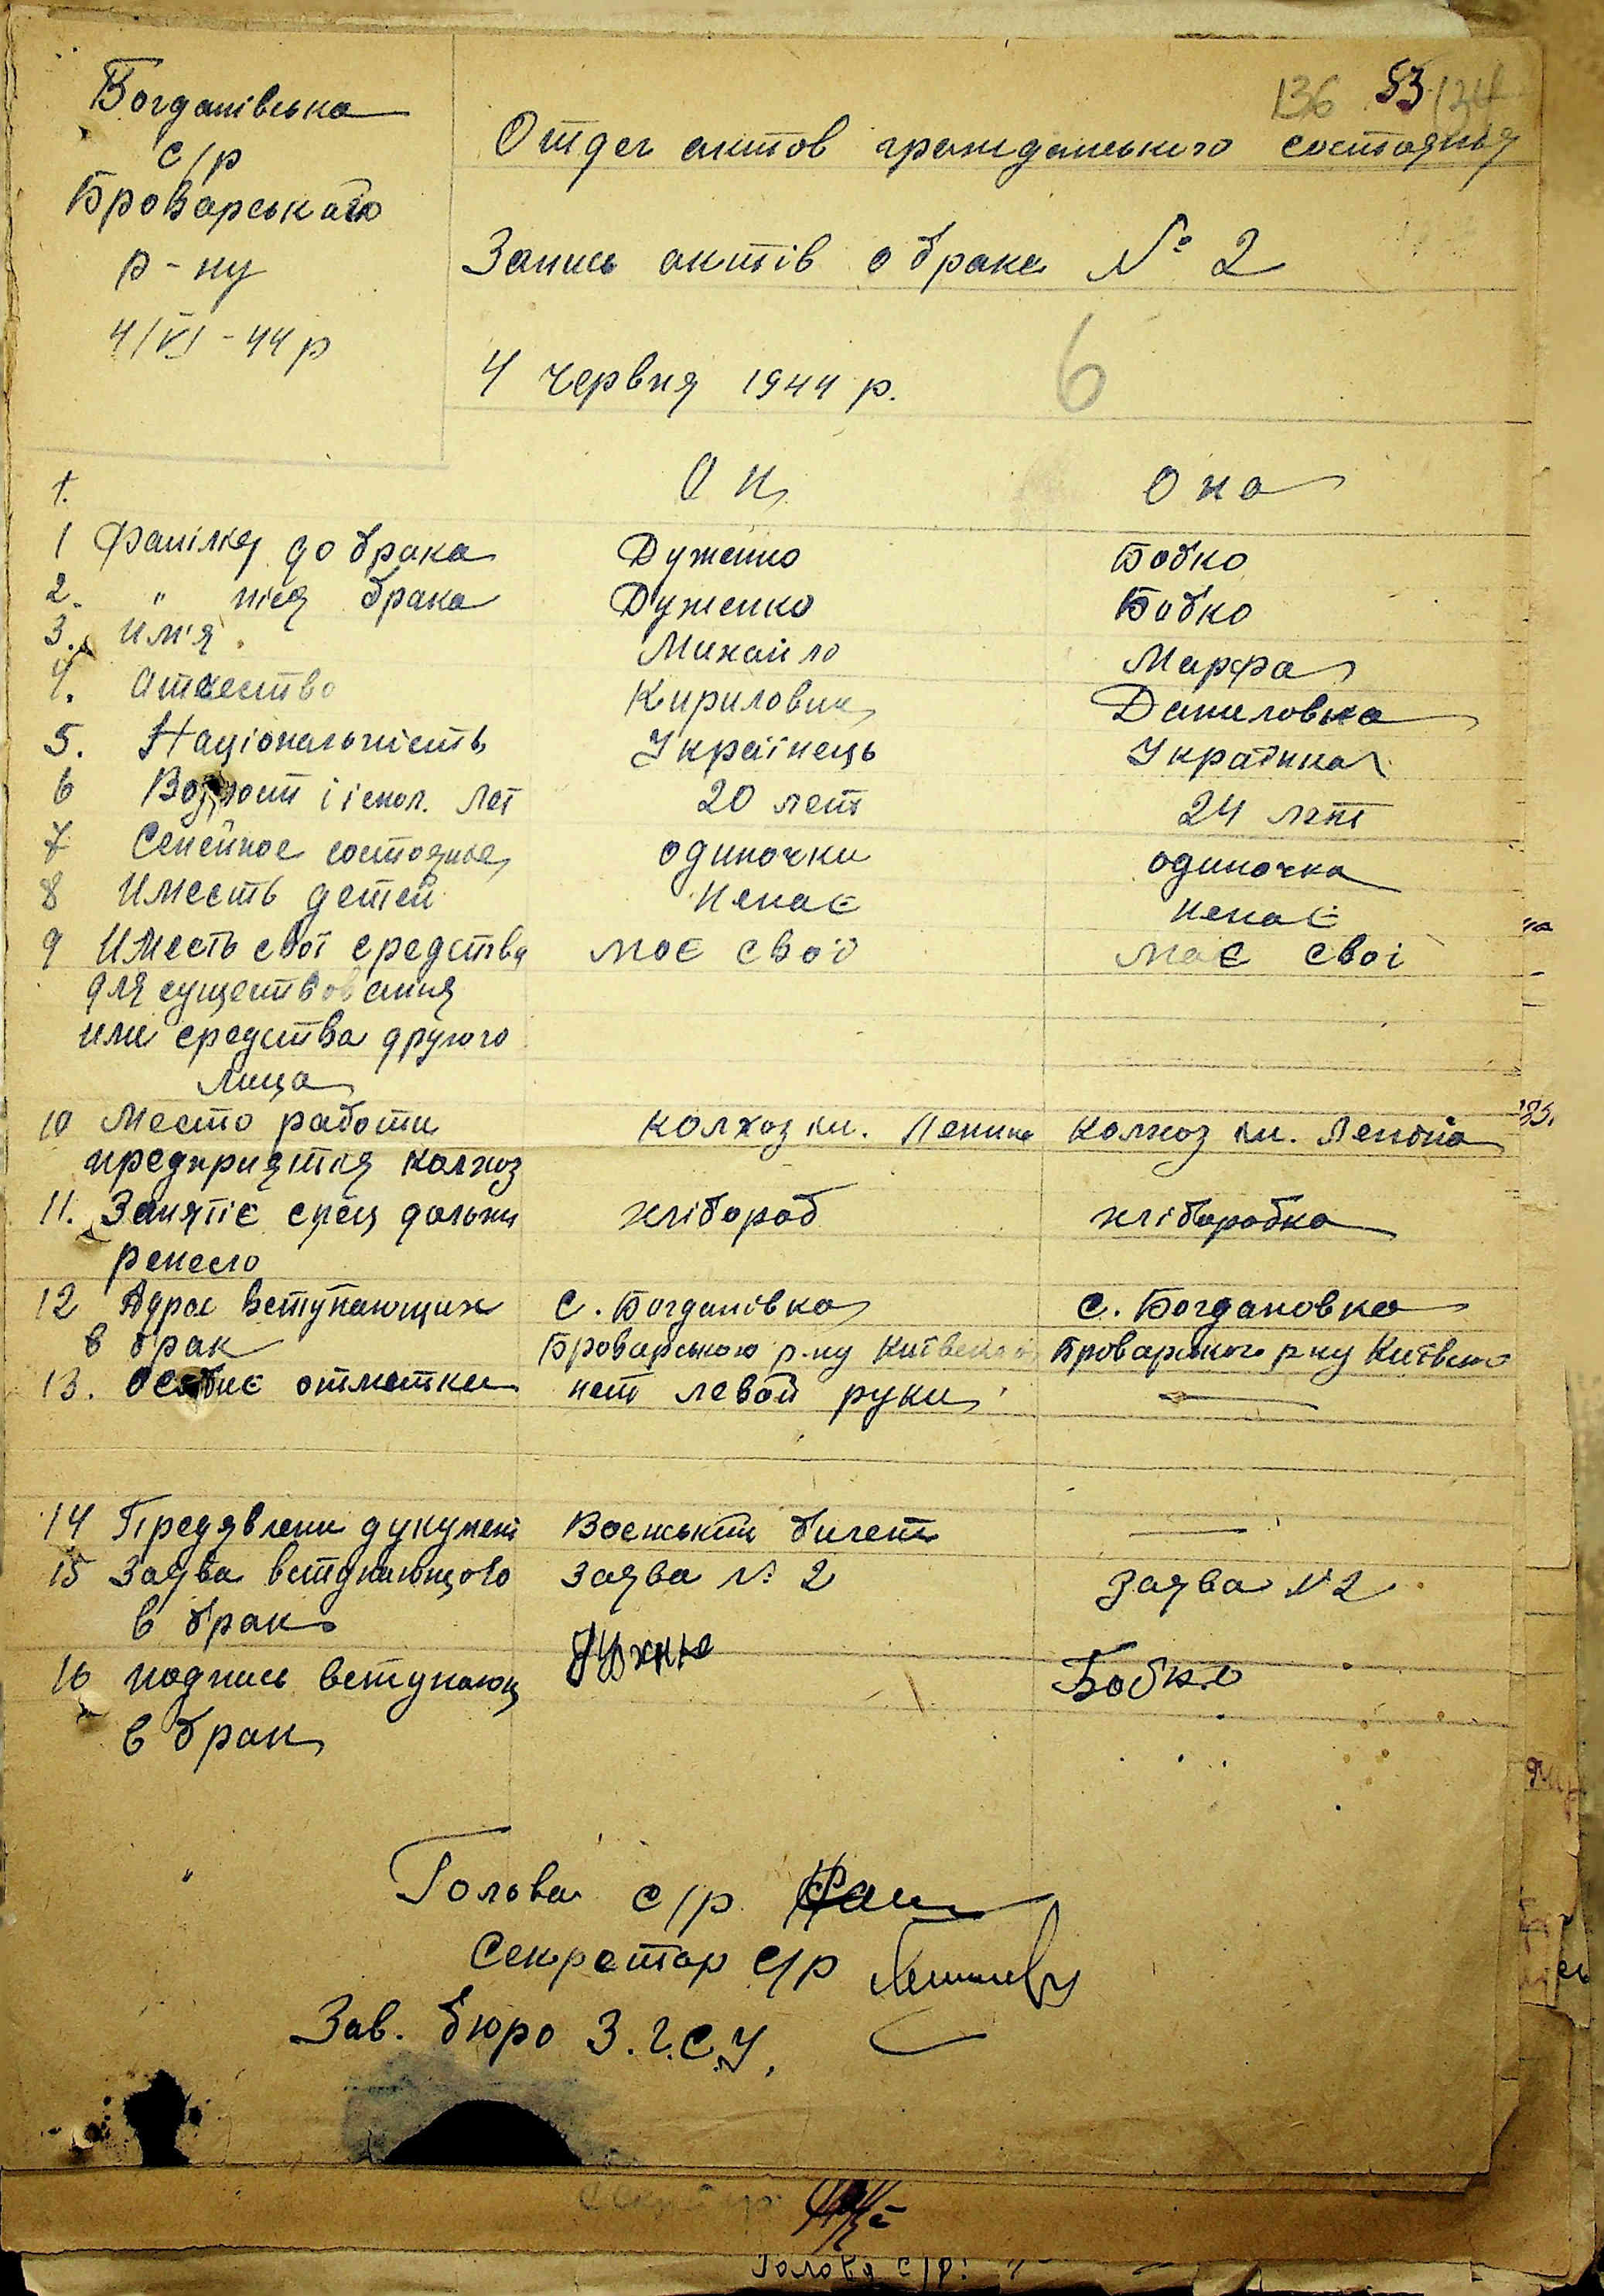 Богданівська
с/р
Броварського
р-ну
4/VI - 44 р
136 53
Отдел актов гражданського состояния
Запись актів о браке № 2
4 червня 1944 р.
6
1. Он Она
1 Фамілия до брака Дуженко Бобко
2. " після брака Дуженко Бобко
3. Им'я Михайло Марфа
4. Отчество Кирилович Даниловна
5. Національність Українець Українка
6 Возрост і іспол. лет 20 лет 24 лет
7 Семейное состояние одиночки одиночка
8 Имеєть детей Немає немає
9 Имеєть свої средства має свої має свої
для существования
или средства другого
лица
10 Место работи колхоз им. Ленина Колхоз им. Леніна
предприятия колхоз
11. Занятіє спец должн хлібороб хліборобка
ремесло
12 Адрес вступающих с. Богданівка с. Богдановка
в брак Броварського р-ну Київської Броварского р-ну Київско
13. особиє отметки нет левой руки —
14 Предявлени дукумент Воєнський билет —
15 Заява вступающого Заява № 2 Заява № 2
в брак
16 подпись вступающ Бобко
в брак
Голова с/р
Секретар с/р
Зав. бюро З.Г.С.У.
Голова с/р: